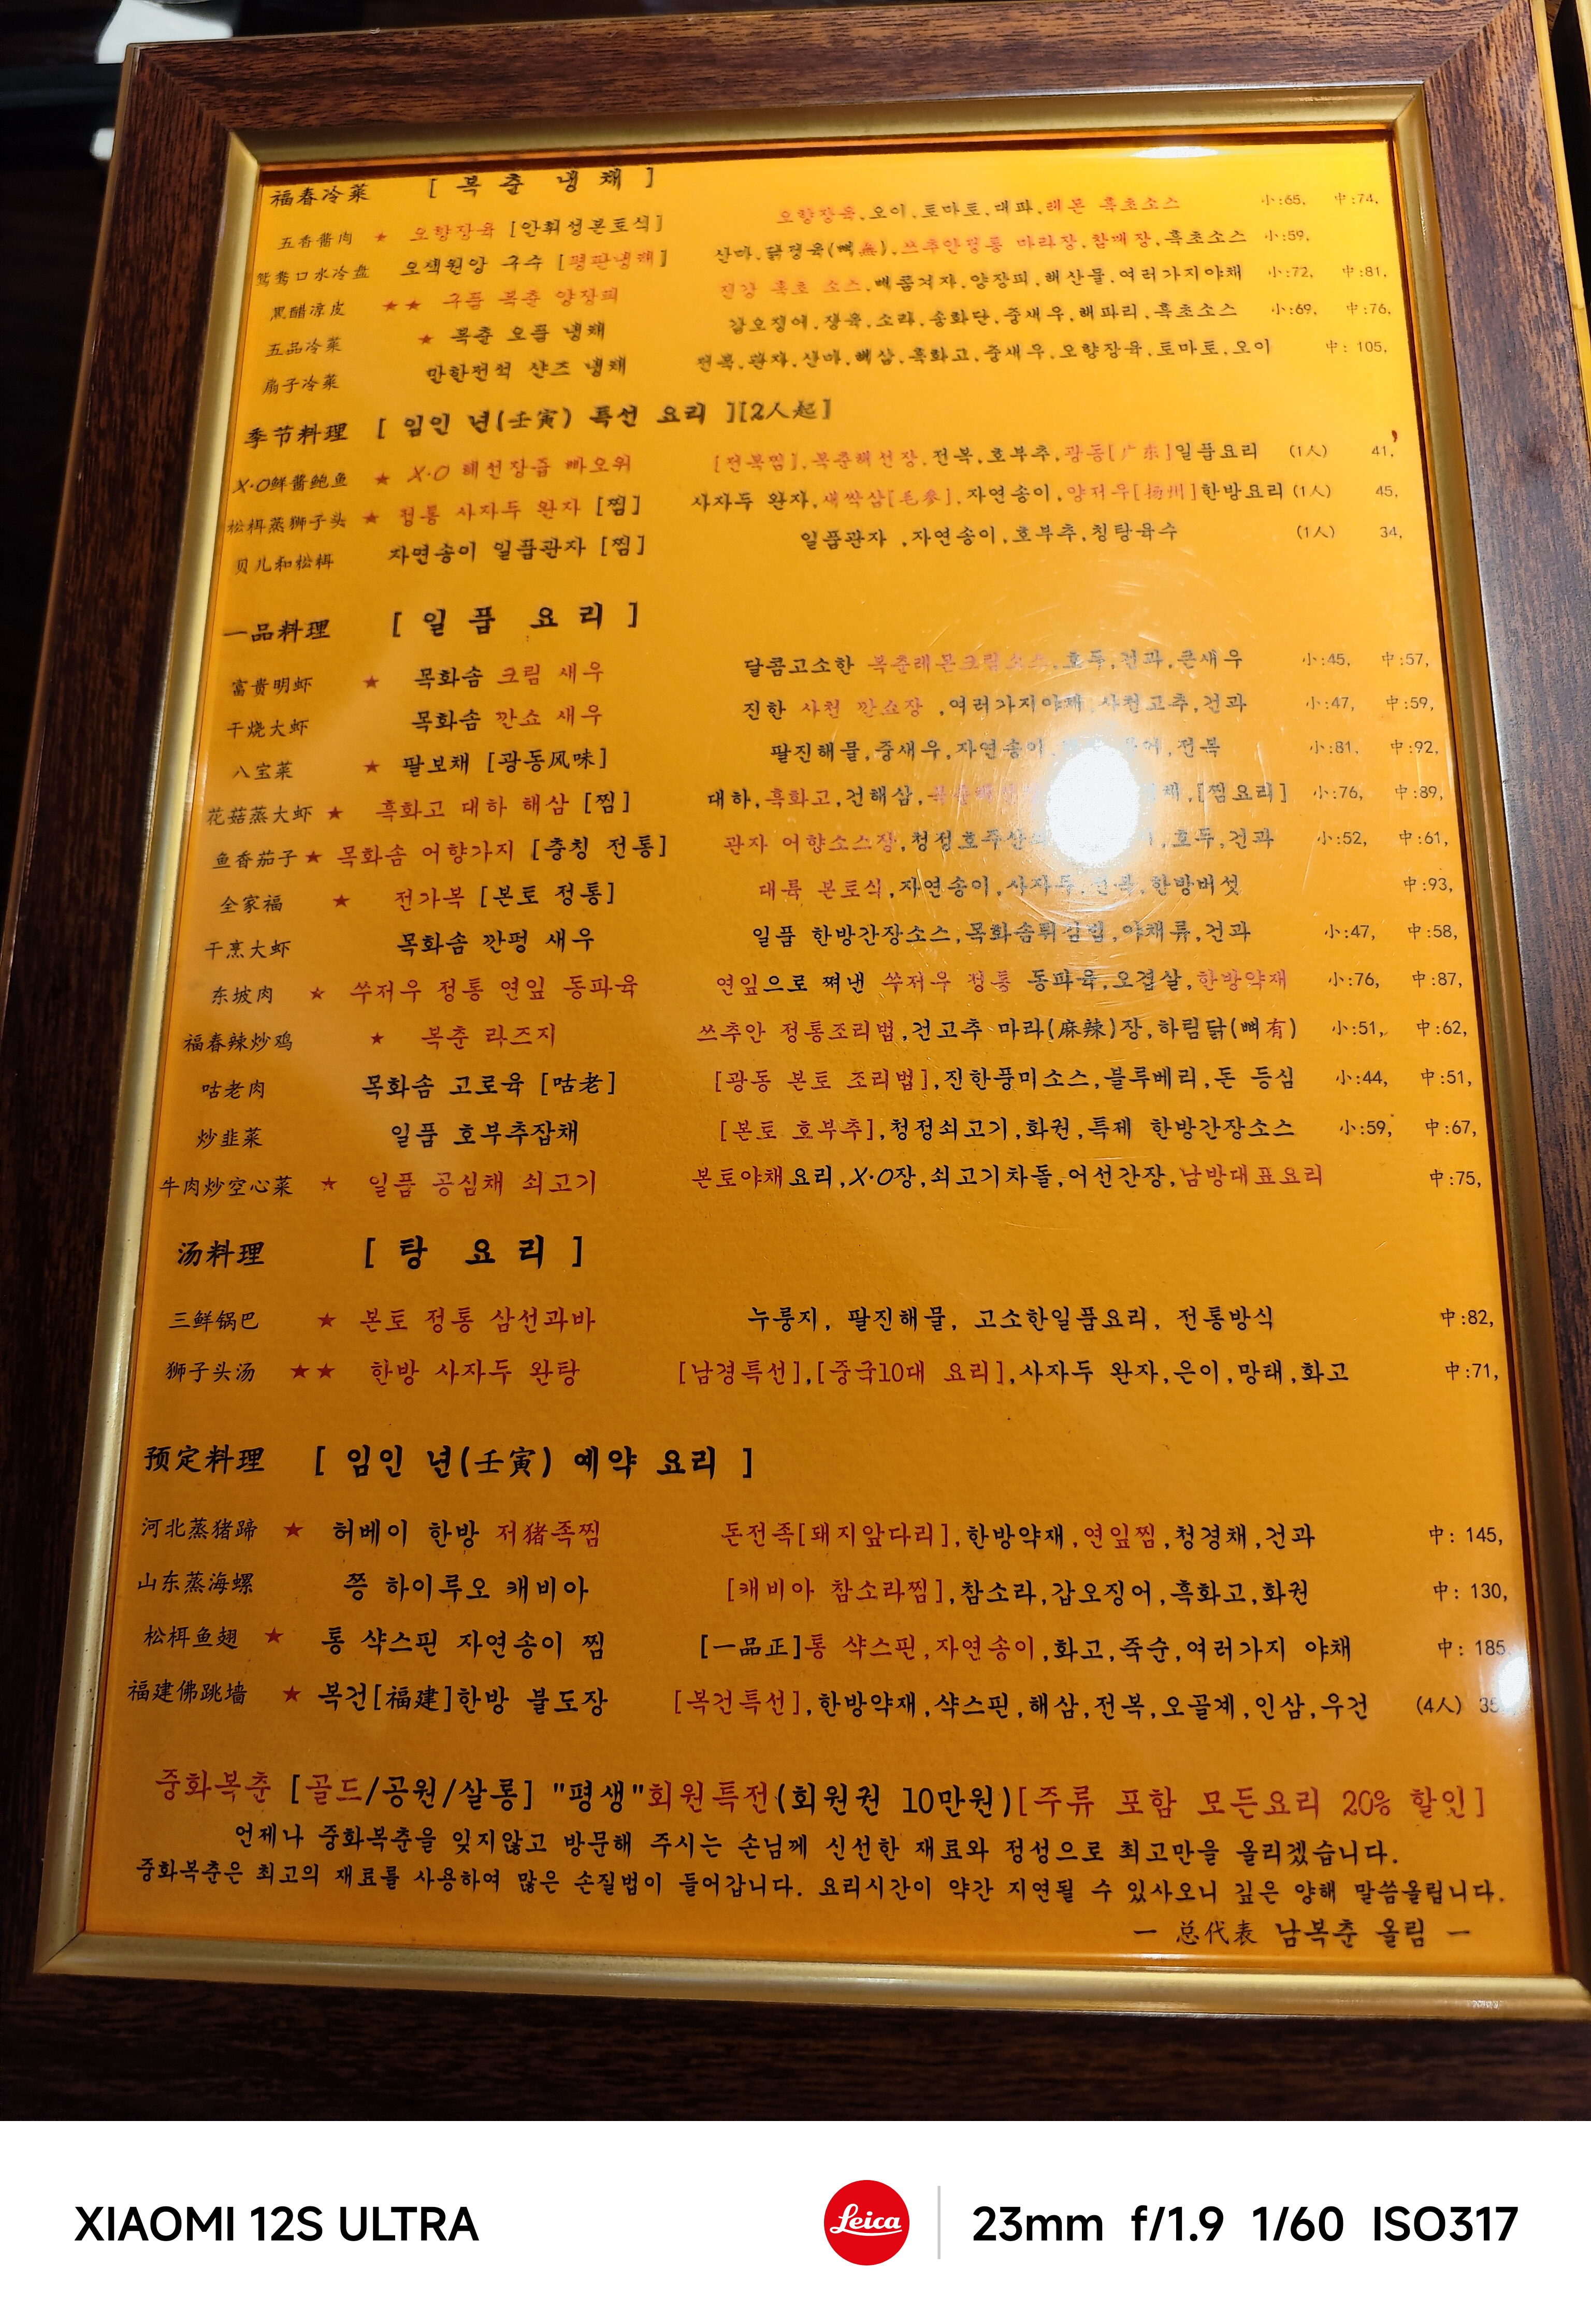 福春冷菜 [ 복 춘 냉 채 ]
五香醬肉 ★ 오향장육 [안휘성본토식] 오향장육.오이.토마토.대파.레몬 흑초소스 小:65, 中:74,
鸳鸯口水冷盘 오색원앙 구수 [평판냉채] 산마.닭정육(뼈無).쓰추안정통 마라장.참깨장.흑초소스 小:59,
黑醋凉皮 ★★ 구품 복춘 양장피 진강 흑초 소스.매콤겨자.양장피.해산물.여러가지야채 小:72, 中:81,
五品冷菜 ★ 복춘 오품 냉채 갑오징어.장육.소라.송화단.중새우.해파리.흑초소스 小:69, 中:76,
扇子冷菜 만한전석 샨즈 냉채 전복.관자.산마.해삼.흑화고.중새우.오향장육.토마토.오이 中: 105,
季节料理 [ 임인 년(壬寅) 특선 요리 ][2人起]
X·O鲜酱鲍鱼 ★ X·O 해선장즙 빠오위 [전복찜].복춘해선장.전복.호부추.광동[广东]일품요리 (1人) 41,
松栮蒸狮子头 ★ 정통 사자두 완자 [찜] 사자두 완자.새싹삼[毛參].자연송이.양저우[扬州]한방요리 (1人) 45,
贝儿和松栮 자연송이 일품관자 [찜] 일품관자 ,자연송이,호부추,칭탕육수 (1人) 34,
一品料理 [ 일 품 요 리 ]
富贵明虾 ★ 목화솜 크림 새우 달콤고소한 복춘레몬크림소스.호두,건과.큰새우 小:45, 中:57,
干烧大虾 목화솜 깐쇼 새우 진한 사천 깐쇼장 ,여러가지야채,사천고추,건과 小:47, 中:59,
八宝菜 ★ 팔보채 [광동风味] 팔진해물,중새우,자연송이, 전복 小:81, 中:92,
花菇蒸大虾 ★ 흑화고 대하 해삼 [찜] 대하,흑화고,건해삼, [찜요리] 小:76, 中:89,
鱼香茄子 ★ 목화솜 어향가지 [충칭 전통] 관자 어향소스장,청정호주산 호두,건과 小:52, 中:61,
全家福 ★ 전가복 [본토 정통] 대륙 본토식,자연송이,사자두,전복,한방버섯 中:93,
干烹大虾 목화솜 깐펑 새우 일품 한방간장소스,목화솜튀김법,야채류,건과 小:47, 中:58,
东坡肉 ★ 쑤저우 정통 연잎 동파육 연잎으로 쪄낸 쑤저우 정통 동파육,오겹살,한방약재 小:76, 中:87,
福春辣炒鸡 ★ 복춘 라즈지 쓰추안 정통조리법,건고추 마라(麻辣)장,하림닭(뼈有) 小:51, 中:62,
咕老肉 목화솜 고로육 [咕老] [광동 본토 조리법],진한풍미소스,블루베리,돈 등심 小:44, 中:51,
炒韭菜 일품 호부추잡채 [본토 호부추],청정쇠고기,화권,특제 한방간장소스 小:59, 中:67,
牛肉炒空心菜 ★ 일품 공심채 쇠고기 본토야채요리,X·O장,쇠고기차돌,어선간장,남방대표요리 中:75,
汤料理 [ 탕 요 리 ]
三鲜锅巴 ★ 본토 정통 삼선과바 누룽지, 팔진해물, 고소한일품요리, 전통방식 中:82,
狮子头汤 ★★ 한방 사자두 완탕 [남경특선],[중국10대 요리],사자두 완자,은이,망태,화고 中:71,
预定料理 [ 임인 년(壬寅) 예약 요리 ]
河北蒸猪蹄 ★ 허베이 한방 저猪족찜 돈전족[돼지앞다리],한방약재,연잎찜,청경채,건과 中: 145,
山东蒸海螺 쯩 하이루오 캐비아 [캐비아 참소라찜],참소라,갑오징어,흑화고,화권 中: 130,
松栮鱼翅 ★ 통 샥스핀 자연송이 찜 [一品正]통 샥스핀,자연송이,화고,죽순,여러가지 야채 中: 185
福建佛跳墙 ★ 복건[福建]한방 불도장 [복건특선],한방약재,샥스핀,해삼,전복,오골계,인삼,우건 (4人)
중화복춘 [골드/공원/살롱] "평생"회원특전(회원권 10만원)[주류 포함 모든요리 20% 할인]
언제나 중화복춘을 잊지않고 방문해 주시는 손님께 신선한 재료와 정성으로 최고만을 올리겠습니다.
중화복춘은 최고의 재료를 사용하여 많은 손질법이 들어갑니다. 요리시간이 약간 지연될 수 있사오니 깊은 양해 말씀올립니다.
— 总代表 남복춘 올림 —
XIAOMI 12S ULTRA
Leica
23mm f/1.9 1/60 ISO317